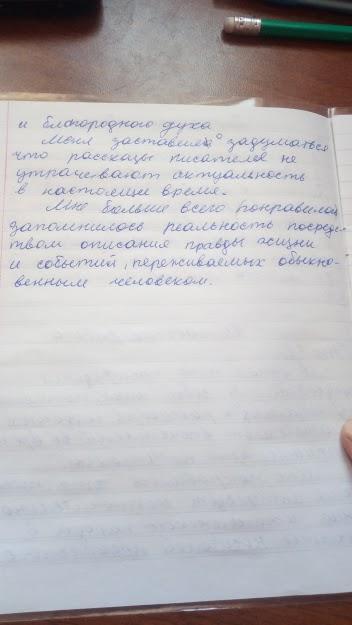 и благородного духа.
Меня заставило задуматься
что рассказы писателя не
утрачивают актуальность
в настоящее время.
Мне больше всего понравилось
запомнилось реальность посредс
твом описания правды жизни
и событий, переживаемых обыкно-
венным человеком.